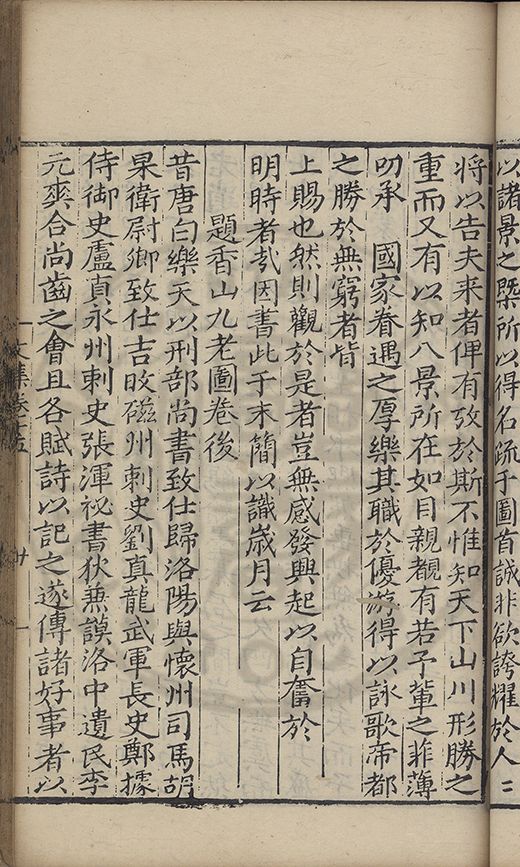 以諸景之槩所以得名疏于圖首誠非欲誇耀於人二
將以告夫来者俾有攷於斯不惟知天下山川形勝之
重而又有以知八景所在如目親覩有若予輩之非薄
叨承　國家眷遇之厚樂其職於優游得以詠歌帝都
之勝於無窮者皆
上賜也然則觀於是者豈無感發興起以自奮於
明時者㢤因書此于末簡以識歳月云
題香山九老圖卷後
昔唐白樂天以刑部尚書致仕歸洛陽與懷州司馬胡
杲衛尉卿致仕吉旼磁州刺史劉真龍武軍長史鄭據
侍御史盧真永州刺史張渾祕書狄兼謨洛中遺民李
元爽合尚齒之會且各賦詩以記之遂傳諸好事者以
文集卷十五
廿一